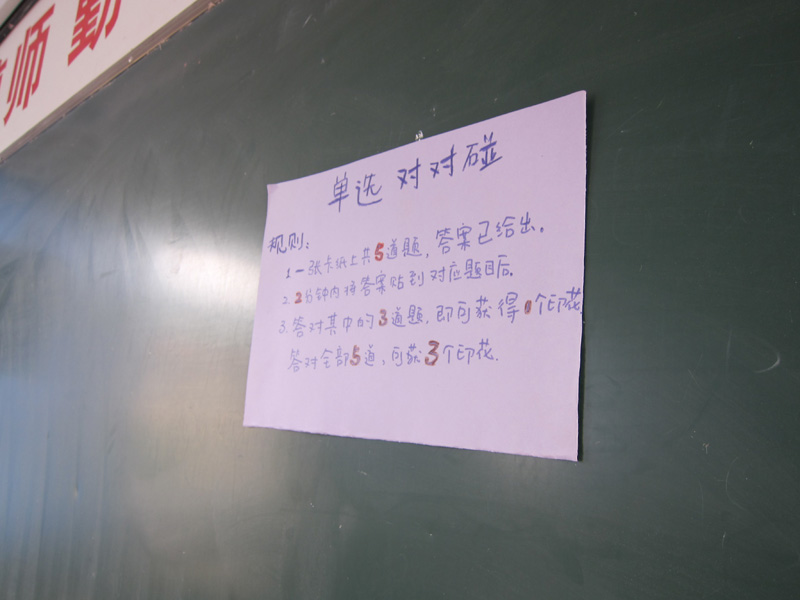 师 勤
单选 对对碰
规则:
1. 一张卡纸上共5道题, 答案已给出。
2. 2分钟内将答案贴到对应题目后。
3. 答对其中的3道题, 即可获得1个印花,
答对全部5道, 可获3个印花.